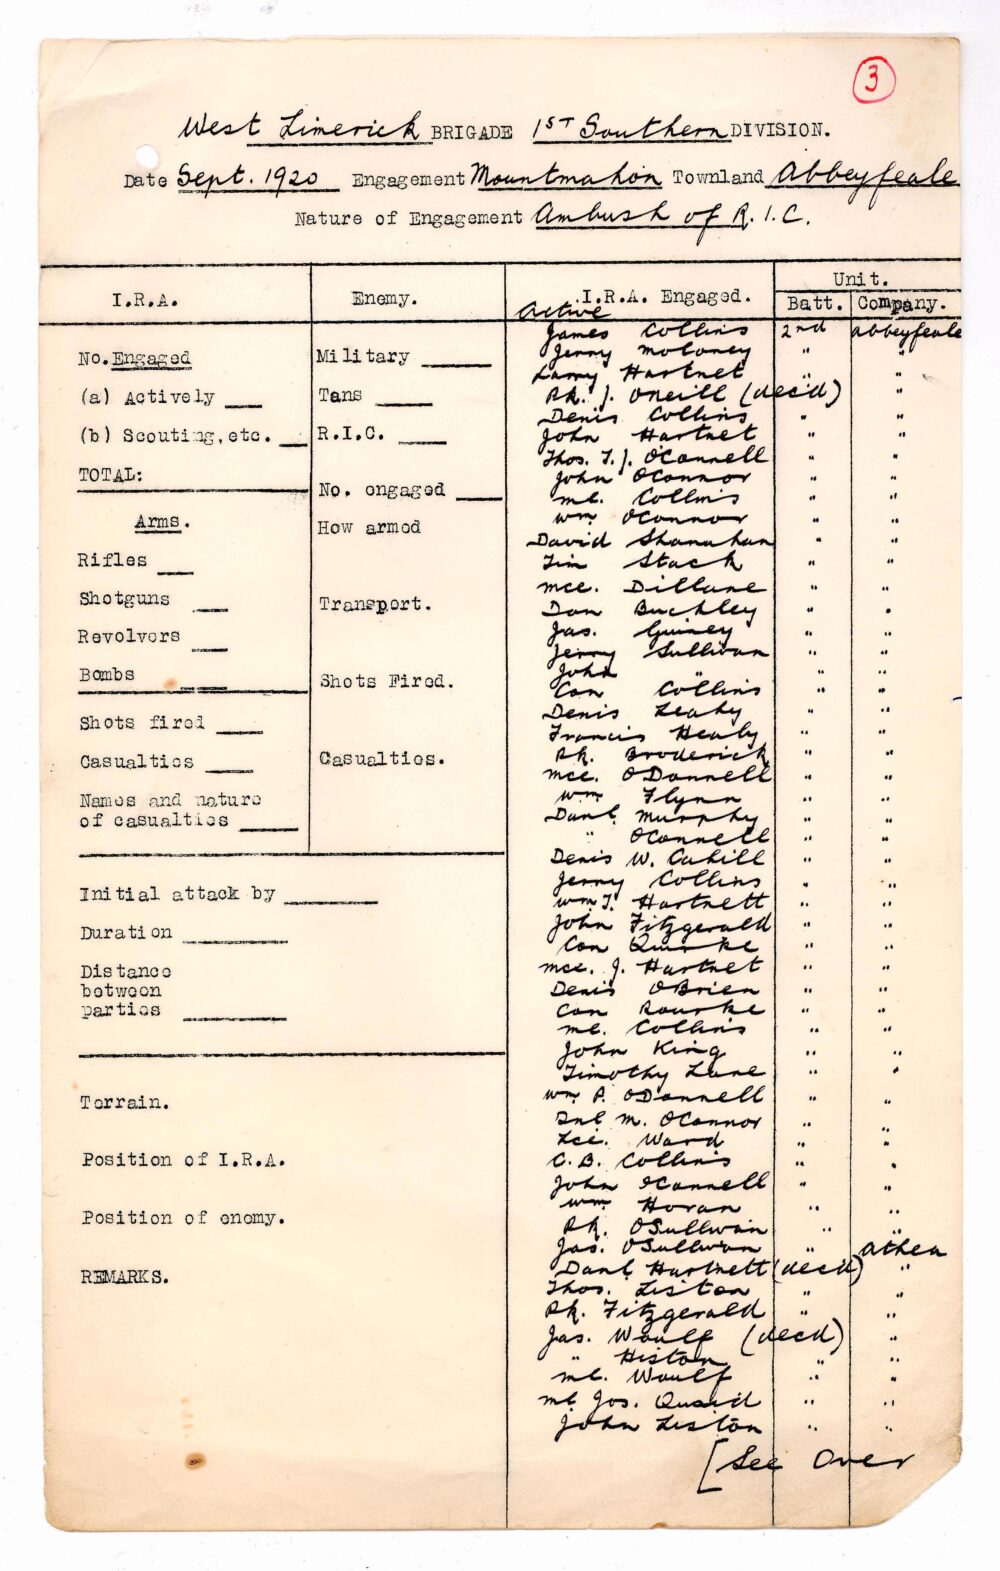 3
West Limerick BRIGADE 1ST Southern DIVISION.
Date Sept. 1920 Engagement Mountmahon Townland Abbeyfeale
Nature of Engagement Ambush of R.I.C.
I.R.A. Enemy. I.R.A. Engaged. Unit.
Batt. Company.
Active
James Collins 2nd Abbeyfeale
Jerry Moloney " "
Larry Hartnet " "
Pk. J. ONeill (dec'd) "
Denis Collins " "
John Hartnet " "
Thos. T. J. OConnell " "
John OConnor " "
Ml. Collins " "
Wm OConnor " "
David Shanahan " "
Tim Stack " "
Mce. Dillane " "
Dan Buckley " "
Jas. Guiney " "
Jerry Sullivan " "
John " " "
Con Collins " "
Denis Leahy " "
Francis Healy " "
Pk. Broderick " "
Mce. ODonnell " "
Wm Flynn " "
Danl. Murphy " "
" OConnell " "
Denis W. Cahill " "
Jerry Collins " "
Wm J. Hartnett " "
John Fitzgerald " "
Con Quirke " "
Mce. J. Hartnet " "
Denis OBrien " "
Con Rourke " "
Ml. Collins " "
John King " "
Timothy Lane " "
Wm P. ODonnell " "
Dnl M. OConnor " "
Lce. Ward " "
C.B. Collins " "
John OConnell " "
Wm Horan " "
Pk. OSullivan " "
Jas. OSullivan " Athea
Danl. Hartnett (dec'd) "
Thos. Liston " "
Pk. Fitzgerald " "
Jas. Woulf (decd) "
" Histon " "
Ml. Woulf " "
Ml Jos. Quaid " "
John Liston " "
[See Over
No. Engaged
(a) Actively
(b) Scouting, etc.
TOTAL:
Arms.
Rifles
Shotguns
Revolvers
Bombs
Shots fired
Casualties
Names and nature
of casualties
Military
Tans
R.I.C.
No. engaged
How armed
Transport.
Shots Fired.
Casualties.
Initial attack by
Duration
Distance
between
parties
Terrain.
Position of I.R.A.
Position of enemy.
REMARKS.